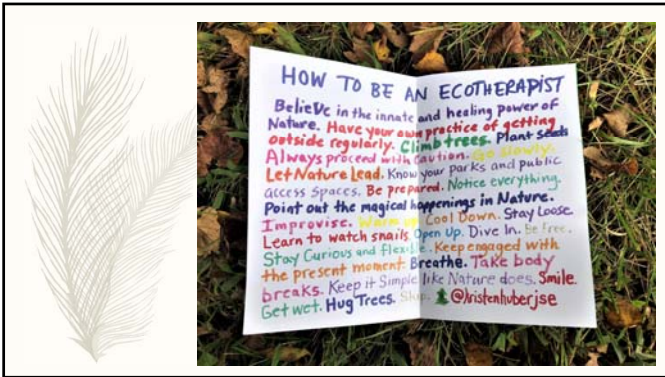 HOW TO BE AN ECOTHERAPIST
BelieVe in the innate and healing power of
Nature. Have your own practice of getting
outside regularly. Climb trees. Plant seeds
Always proceed with caution. Go slowly.
Let Nature Lead. Know your parks and public
access spaces. Be prepared. Notice everything.
Point out the magical happenings in Nature.
Improvise. Warm up Cool Down. Stay Loose
Learn to watch snails. Open Up. Dive In. Be Free.
Stay Curious and flexible. Keep engaged with
the present moment. Breathe. Take body
breaks. Keep it Simple like Nature does. Smile.
Get wet. Hug Trees. Skip. @kristenhuberjse